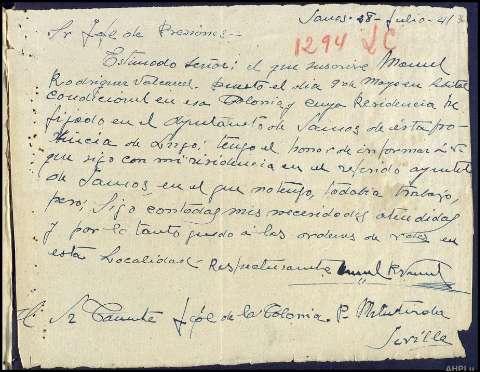 Samos - 28 - Julio - 41
1294
Sr Jefe de
Estimado señor; el que suscrive Manuel
Rodriguez puesto el dia 9 de Mayo en libertad
condicional en esa Colonia y cuya Residencia he
fijado en el Ayuntamto de Samos de esta pro-
vincia de Lugo; tengo el honor de informar a
que sigo con mi residencia en el referido
de Samos, en el que no tengo, todabia trabajo,
pero, Sigo con todas mis necesidades atendidas
y por lo tanto quedo a las ordenes de en
esta Localidad
Sr Teniente Jefe de la Colonia. P.
Sevilla
AHPLu